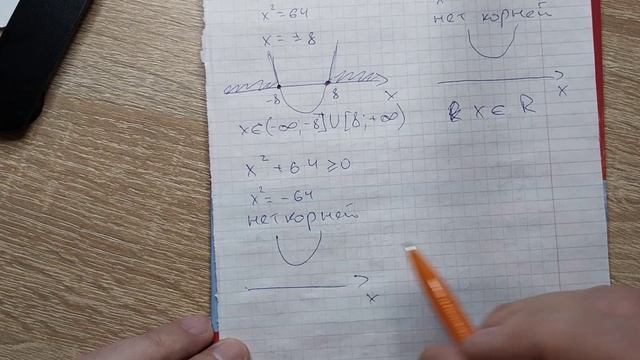 x² = 64
x = ±8
-8 8 x
x ∈ (-∞; -8] ∪ [8; +∞)
x² + 64 ≥ 0
x² = -64
нет корней
x
нет корней
x
x ∈ R